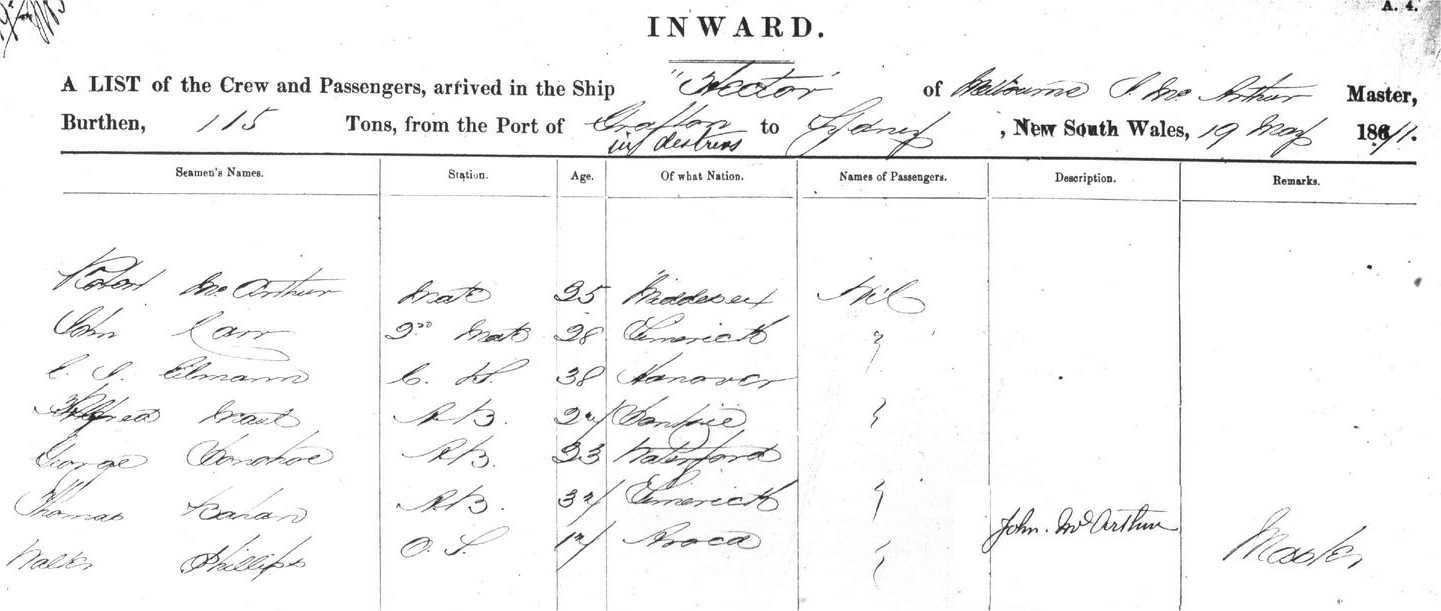 A. 4.
INWARD.
A LIST of the Crew and Passengers, arrived in the Ship "Hector" of Melbourne J. Mc Arthur Master,
Burthen, 115 Tons, from the Port of Grafton to Sydney, New South Wales, 19 May 1871.
in distress
Seamen's Names. Station. Age. Of what Nation. Names of Passengers. Description. Remarks.
Robert Mc Arthur Mate 25 Middlesex Nil
John Carr 2nd Mate 28 Limerick "
C. J. Elmann C. S. 38 Hanover
Alfred AB. 27 "
George Donohoe AB. 23 Waterford
Thomas Kahan AB. 37 Limerick "
Walter Phillips O. S. 17 Avoca "
John. McArthur Master